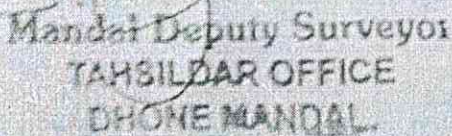 Mandal Deputy Surveyor
TAHSILDAR OFFICE
DHONE MANDAL.